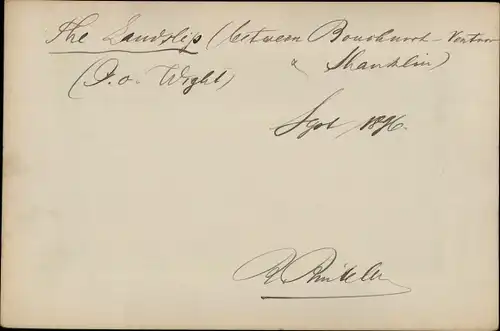 The Landslip (between Bonchurch - Ventnor
& Shanklin)
(I. o. Wight)
Sept 1896.
R.